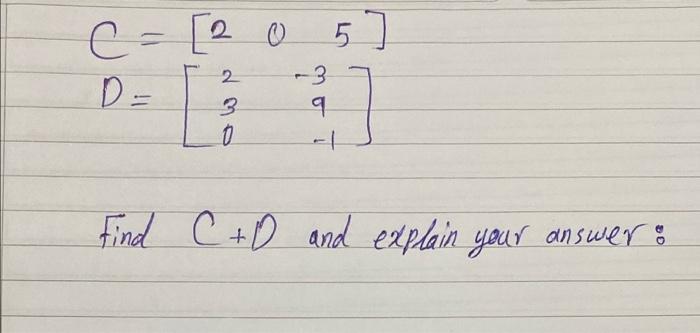 C = [2 0 5]
D = [2 -3
3 9
0 -1]
Find C+D and explain your answer: